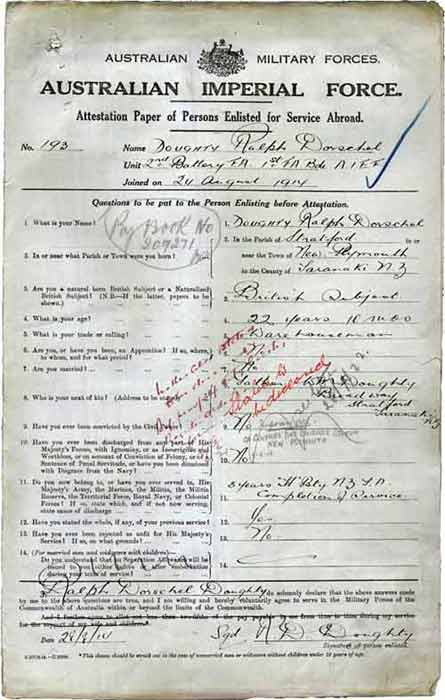 AUSTRALIAN MILITARY FORCES.
AUSTRALIAN IMPERIAL FORCE.
Attestation Paper of Persons Enlisted for Service Abroad.
No. 193 Name DOUGHTY Ralph Dorschel
Unit 2nd Battery FA 1st FA Bde A.I.F.
Joined on 24 August 1914
Questions to be put to the Person Enlisting before Attestation.
1. What is your Name? 1. DOUGHTY Ralph Dorschel
Pay Book No
207271
2. In or near what Parish or Town were you born? 2. In the Parish of Stratford in or
near the Town of New Plymouth
in the County of Taranaki N.Z
3. Are you a natural born British Subject or a Naturalized
British Subject? (N.B.—If the latter, papers to be
shown.) 3. British Subject
4. What is your age? 4. 22 years 10 mos
5. What is your trade or calling? 5. Warehouseman
6. Are you, or have you been, an Apprentice? If so, where,
to whom, and for what period? 6. No
7. Are you married? 7. No
8. Who is your next of kin? (Address to be stated) 8. Father Doughty
Broadway
Stratford
Taranaki N.Z
deceased
9. Have you ever been convicted by the Civil 9. No
NEW PLYMOUTH
10. Have you ever been discharged from any part of His
Majesty's Forces, with Ignominy, or as Incorrigible and
Worthless, or on account of Conviction of Felony, or of a
Sentence of Penal Servitude, or have you been dismissed
with Disgrace from the Navy? 10. No
11. Do you now belong to, or have you ever served in, His
Majesty's Army, the Marines, the Militia, the Militia
Reserve, the Territorial Force, Royal Navy, or Colonial
Forces? If so, state which, and if not now serving,
state cause of discharge 11. 3 years N.Z.
Completion of Service
12. Have you stated the whole, if any, of your previous service? 12. Yes
13. Have you ever been rejected as unfit for His Majesty's
Service? If so, on what grounds? 13. No
14. (For married men and widowers with children)
Do you understand that no Separation Allowance will be
issued to you either before or after embarkation
during your term of service? 14.
I, Ralph Dorschel Doughty do solemnly declare that the above answers made
by me to the above questions are true, and I am willing and hereby voluntarily agree to serve in the Military Forces of the
Commonwealth of Australia within or beyond the limits of the Commonwealth.
for the support of my wife and children.
Date 28/8/14 Sgd R D Doughty
Signature of person enlisted.
* This clause should be struck out in the case of unmarried men or widowers without children under 18 years of age.